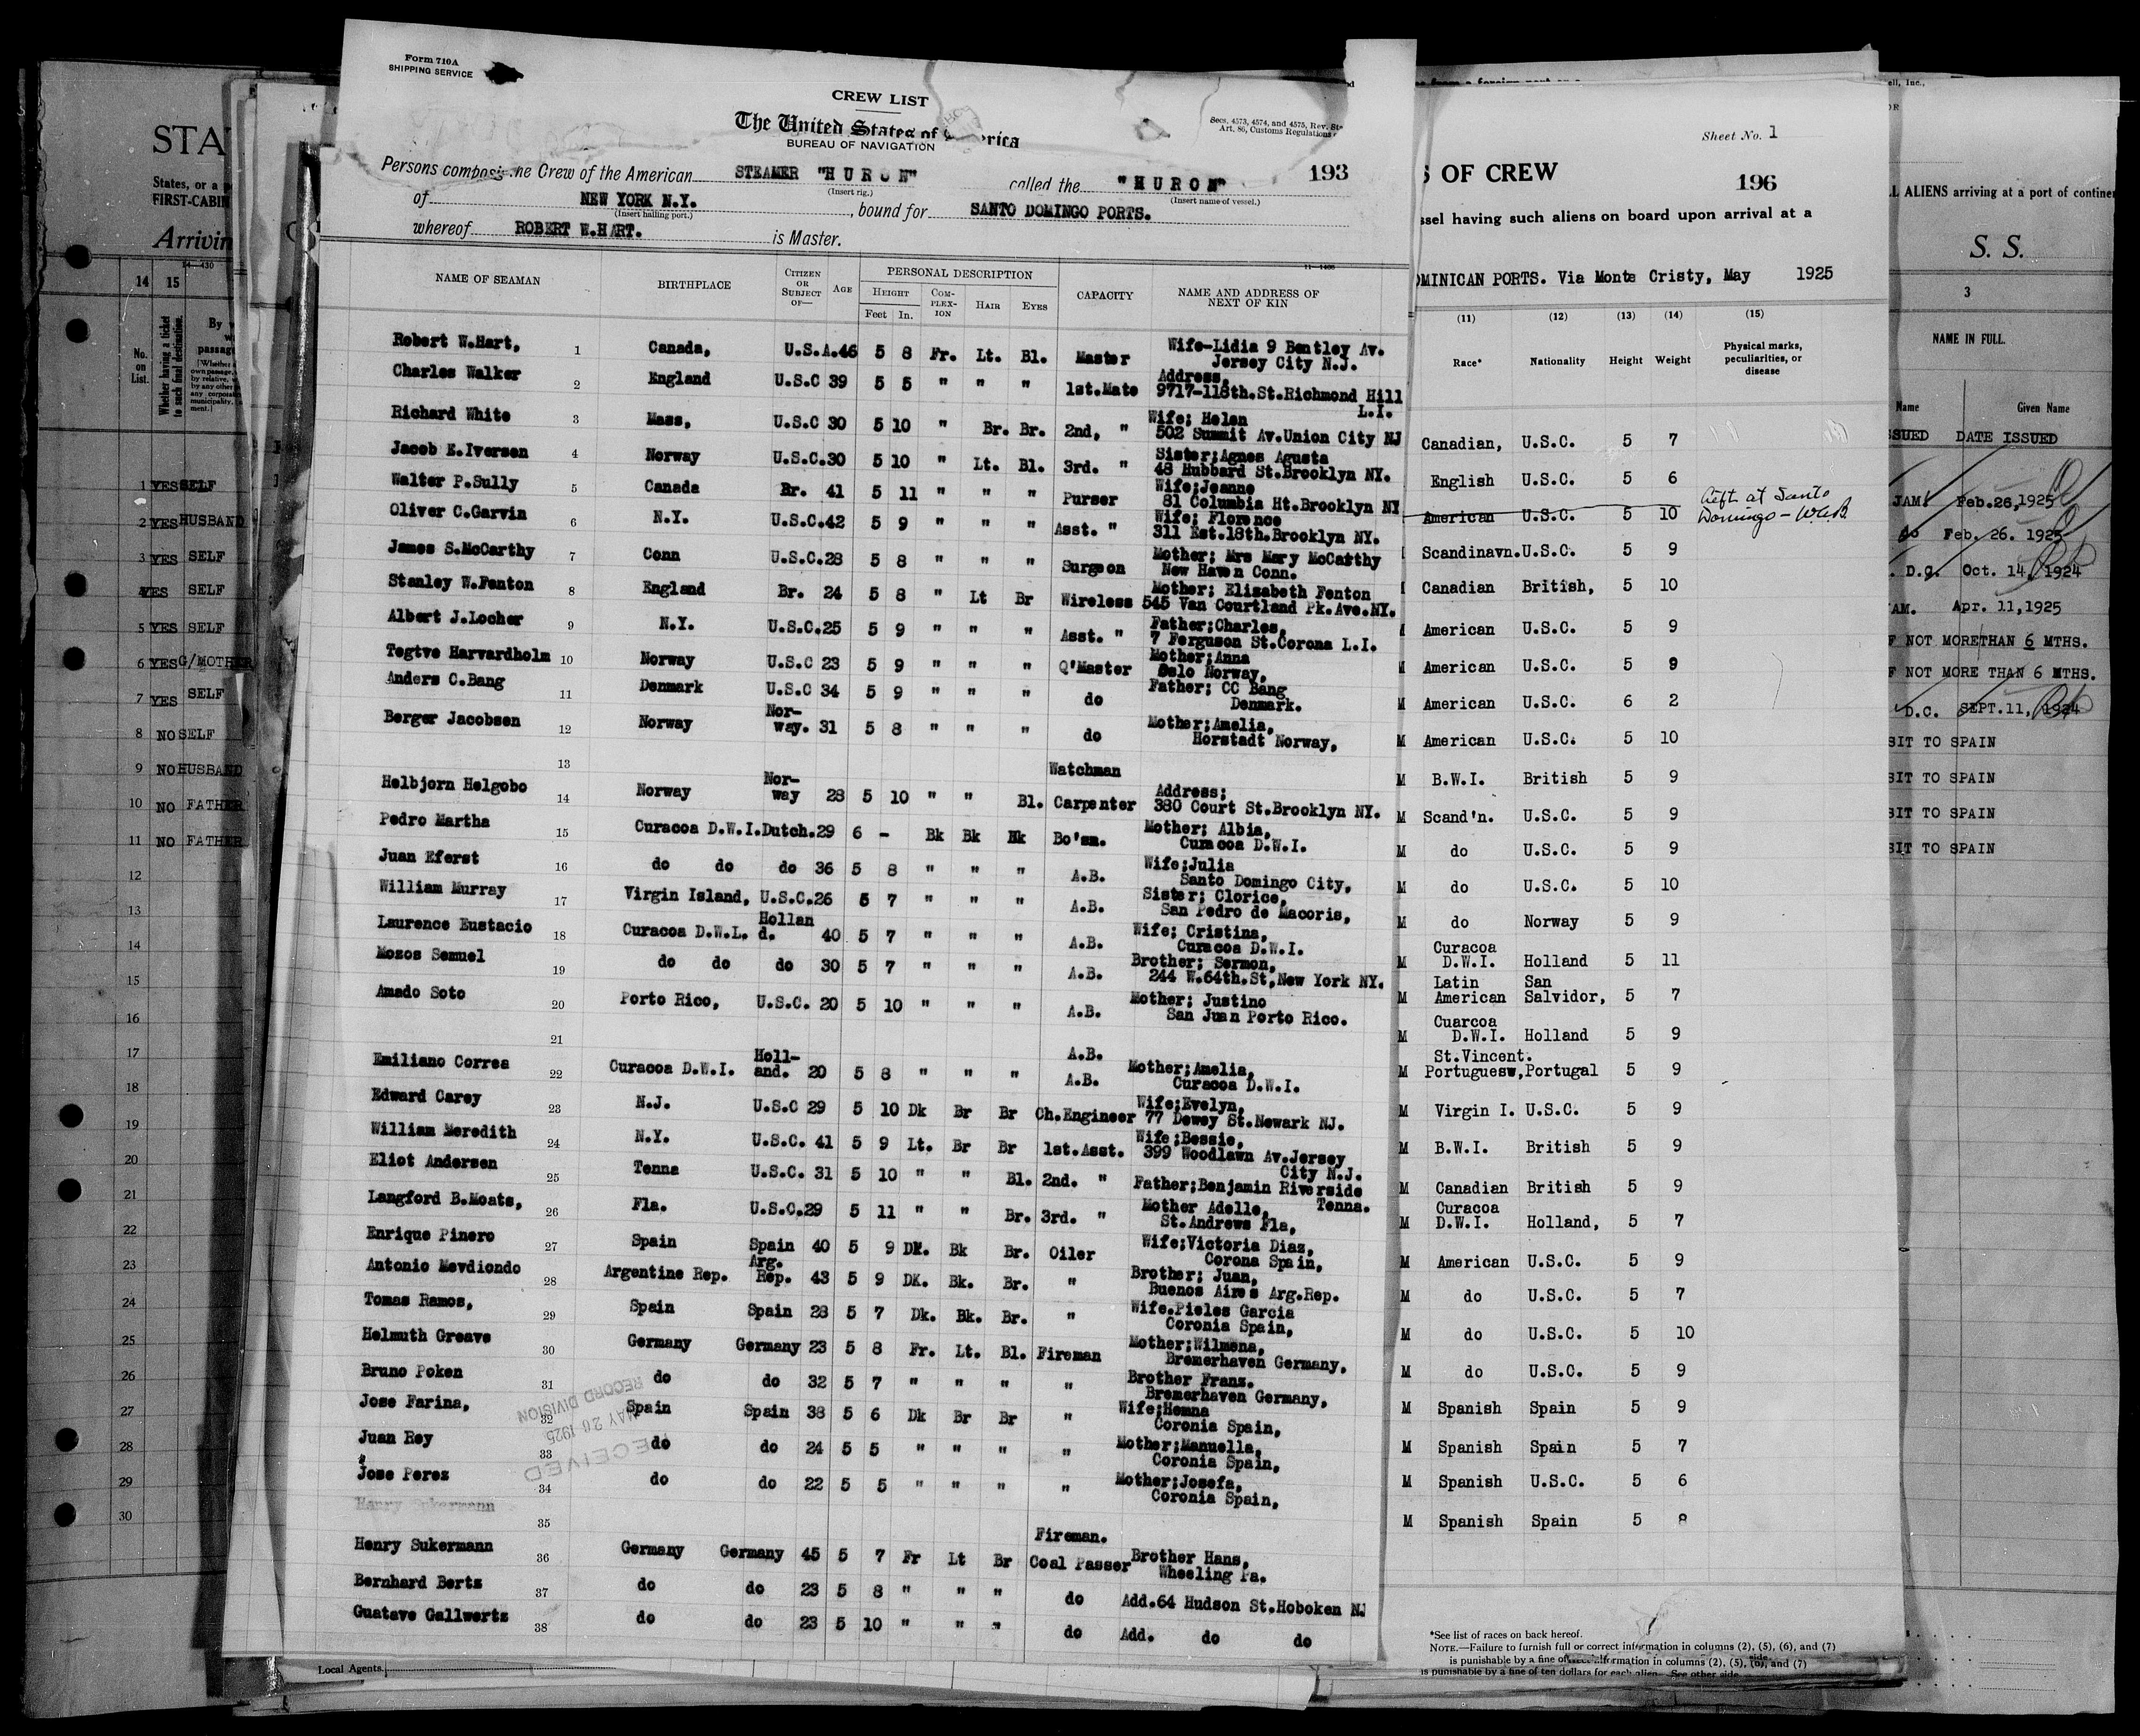 Form 710A
SHIPPING SERVICE
CREW LIST
The United States of
BUREAU OF NAVIGATION
Secs. 4573, 4574, and 4575, Rev.
Art. 86, Customs Regulations
193
Persons Crew of the American STEAMER "HURON" called the "HURON"
(Insert rig.) (Insert name of vessel.)
of NEW YORK N.Y. , bound for SANTO DOMINGO PORTS.
(Insert hailing port.)
whereof ROBERT W.HART. is Master.
11—1408
NAME OF SEAMAN BIRTHPLACE CITIZEN OR SUBJECT OF— AGE PERSONAL DESCRIPTION CAPACITY NAME AND ADDRESS OF NEXT OF KIN
HEIGHT COM-PLEX-ION HAIR EYES
Feet In.
Robert W.Hart, 1 Canada, U.S.A.46 5 8 Fr. Lt. Bl. Master Wife-Lidia 9 Bentley Av.
Jersey City N.J.
Charles Walker 2 England U.S.C 39 5 5 " " " 1st.Mate Address,
9717-118th.St.Richmond Hill
L.I.
Richard White 3 Mass, U.S.C 30 5 10 " Br. Br. 2nd, " Wife; Helen
502 Summit Av.Union City NJ
Jacob E.Iversen 4 Norway U.S.C.30 5 10 " Lt. Bl. 3rd. " Sister;Agnes Agusta
48 Hubbard St.Brooklyn NY.
Walter P.Sully 5 Canada Br. 41 5 11 " " " Purser Wife;Jeanne
81 Columbia Ht.Brooklyn NY
Oliver C.Garvin 6 N.Y. U.S.C.42 5 9 " " " Asst. " Wife; Florence
311 Est.18th.Brooklyn NY.
James S.McCarthy 7 Conn U.S.C.28 5 8 " " " Surgeon Mother; Mrs Mary McCarthy
New Haven Conn.
Stanley W.Fenton 8 England Br. 24 5 8 " Lt Br Wireless Mother; Elizabeth Fenton
545 Van Courtland Pk.Ave.NY.
Albert J.Locher 9 N.Y. U.S.C.25 5 9 " " " Asst. " Father;Charles,
7 Ferguson St.Corona L.I.
Tegtve Harvardholm 10 Norway U.S.C 23 5 9 " " " Q'Master Mother;Anna
Oslo Norway,
Anders C.Bang 11 Denmark U.S.C 34 5 9 " " " do Father; CC Bang
Denmark.
Berger Jacobsen 12 Norway Nor-way. 31 5 8 " " " do Mother;Amelia,
Horstadt Norway,
13 Watchman
Helbjorn Helgobo 14 Norway Nor-way 28 5 10 " " Bl. Carpenter Address;
380 Court St.Brooklyn NY.
Pedro Martha 15 Curacoa D.W.I.Dutch.29 6 - Bk Bk Bk Bo'sn. Mother; Albia,
Curacoa D.W.I.
Juan Eferst 16 do do do 36 5 8 " " " A.B. Wife;Julia
Santo Domingo City,
William Murray 17 Virgin Island, U.S.C.26 5 7 " " " A.B. Sister; Clorice,
San Pedro de Macoris,
Laurence Eustacio 18 Curacoa D.W.L. Holland. 40 5 7 " " " A.B. Wife; Cristina,
Curacoa D.W.I.
Mozos Semuel 19 do do do 30 5 7 " " " A.B. Brother; Sermon,
244 W.64th.St,New York NY.
Amado Soto 20 Porto Rico, U.S.C. 20 5 10 " " " A.B. Mother; Justino
San Juan Porto Rico.
21 A.B.
Emiliano Correa 22 Curacoa D.W.I. Holl-and. 20 5 8 " " " A.B. Mother;Amelia,
Curacoa D.W.I.
Edward Carey 23 N.J. U.S.C 29 5 10 Dk Br Br Ch.Engineer Wife;Evelyn,
77 Dewey St.Newark NJ.
William Meredith 24 N.Y. U.S.C. 41 5 9 Lt. Br Br 1st.Asst. Wife;Bessie,
399 Woodlawn Av.Jersey
City N.J.
Eliot Andersen 25 Tenna U.S.C. 31 5 10 " " Bl. 2nd. " Father;Benjamin Riverside
Tenna.
Langford B.Moats, 26 Fla. U.S.C.29 5 11 " " Br. 3rd. " Mother Adelle,
St.Andrews Fla,
Enrique Pinero 27 Spain Spain 40 5 9 DK. Bk Br. Oiler Wife;Victoria Diaz,
Corona Spain,
Antonio Mevdiondo 28 Argentine Rep. Arg. Rep. 43 5 9 DK. Bk. Br. " Brother; Juan,
Buenos Aires Arg.Rep.
Tomas Ramos, 29 Spain Spain 28 5 7 Dk. Bk. Br. " Wife.Pieles Garcia
Coronia Spain,
Helmuth Greave 30 Germany Germany 23 5 8 Fr. Lt. Bl. Fireman Mother;Wilmena,
Bremerhaven Germany,
Bruno Poken 31 do do 32 5 7 " " " " Brother Franz.
Bremerhaven Germany,
Jose Farina, 32 Spain Spain 38 5 6 Dk Br Br " Wife;Hemna
Coronia Spain,
Juan Rey 33 do do 24 5 5 " " " " Mother;Manuella,
Coronia Spain,
Jose Perez 34 do do 22 5 5 " " " " Mother;Josefa,
Coronia Spain,
Harry Sukermann
35 Fireman.
Henry Sukermann 36 Germany Germany 45 5 7 Fr Lt Br Coal Passer Brother Hans,
Wheeling Pa.
Bernhard Bertz 37 do do 23 5 8 " " " do Add.64 Hudson St.Hoboken NJ
Gustave Gallwertz 38 do do 23 5 10 " " " do Add. do do
RECEIVED
MAY 26 1925
RECORD DIVISION
Local Agents.
Sheet No. 1
S OF CREW
196
ssel having such aliens on board upon arrival at a
OMINICAN PORTS. Via Monte Cristy, May 1925
(11) (12) (13) (14) (15)
Race* Nationality Height Weight Physical marks, peculiarities, or disease
Canadian, U.S.C. 5 7
English U.S.C. 5 6
American U.S.C. 5 10 Left at Santo
Domingo - W.C.B.
Scandinavn.U.S.C. 5 9
Canadian British, 5 10
American U.S.C. 5 9
M American U.S.C. 5 9
M American U.S.C. 6 2
M American U.S.C. 5 10
M B.W.I. British 5 9
M Scand'n. U.S.C. 5 9
M do U.S.C. 5 9
M do U.S.C. 5 10
M do Norway 5 9
M Curacoa D.W.I. Holland 5 11
M Latin American San Salvidor, 5 7
M Cuarcoa D.W.I. Holland 5 9
St.Vincent.
M Portuguesw,Portugal 5 9
M Virgin I. U.S.C. 5 9
M B.W.I. British 5 9
M Canadian British 5 9
M Curacoa D.W.I. Holland, 5 7
M American U.S.C. 5 9
M do U.S.C. 5 7
M do U.S.C. 5 10
M do U.S.C. 5 9
M Spanish Spain 5 9
M Spanish Spain 5 7
M Spanish U.S.C. 5 6
M Spanish Spain 5 8
*See list of races on back hereof.
NOTE.—Failure to furnish full or correct information in columns (2), (5), (6), and (7)
is punishable by a fine of information in columns (2), (5), (6), and (7)
is punishable by a fine of ten dollars for each alien. See other side.
STA
States, or a p
FIRST-CABIN
Arrivin
14—430
14 15
No. on List.
Whether having a ticket to such final destination.
By w
passag
1 YES SELF
2 YES HUSBAND
3 YES SELF
4 YES SELF
5 YES SELF
6 YES G/MOTHER
7 YES SELF
8 NO SELF
9 NO HUSBAND
10 NO FATHER
11 NO FATHER
12
13
14
15
16
17
18
19
20
21
22
23
24
25
26
27
28
29
30
ell, Inc.,
OR
LL ALIENS arriving at a port of continen
S. S.
3
NAME IN FULL.
Name Given Name
SSUED DATE ISSUED
JAM. Feb.26,1925
do Feb. 26. 1925
. D.C. Oct. 14, 1924
AM. Apr. 11,1925
F NOT MORETHAN 6 MTHS.
F NOT MORE THAN 6 MTHS.
D.C. SEPT.11, 1924
SIT TO SPAIN
SIT TO SPAIN
SIT TO SPAIN
SIT TO SPAIN